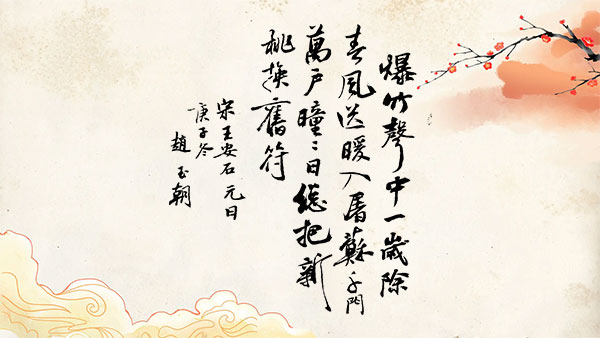 爆竹聲中一歲除
春風送暖入屠蘇千門
萬戶曈〻日總把新
桃換舊符
宋王安石元日
庚子冬
趙玉朝